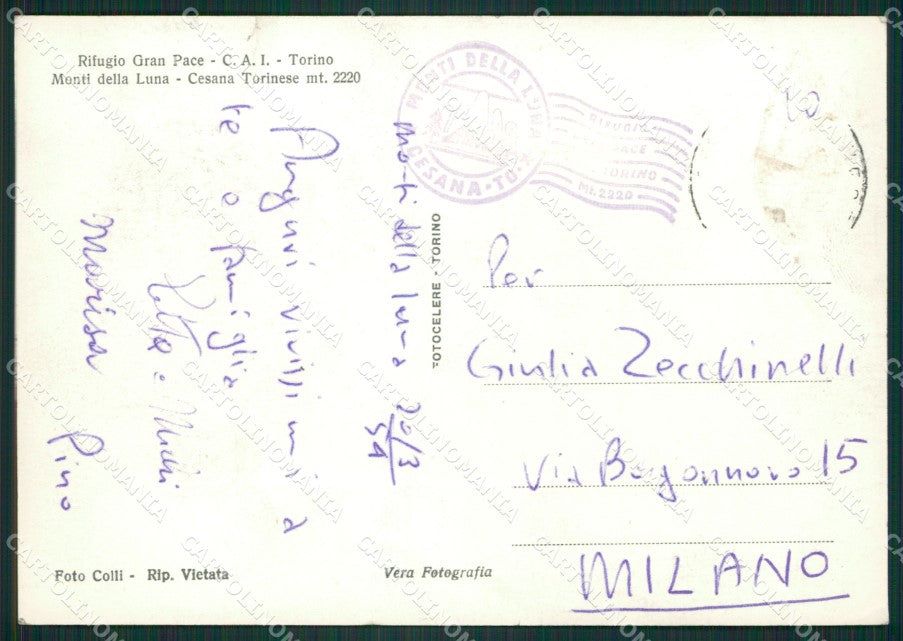 Rifugio Gran Pace - C. A. I. - Torino
Monti della Luna - Cesana Torinese mt. 2220
MONTI DELLA LUNA
CESANA - TO
RIFUGIO
PACE
TORINO
Mt. 2220
monti della luna 20/3
54
Auguri vivissimi a
te e famiglia
Mari
Marisa
Pino
FOTOCELERE - TORINO
Per
Giulia Zecchinelli
Via 15
MILANO
Foto Colli - Rip. Vietata
Vera Fotografia
CARTOLINOMANIA